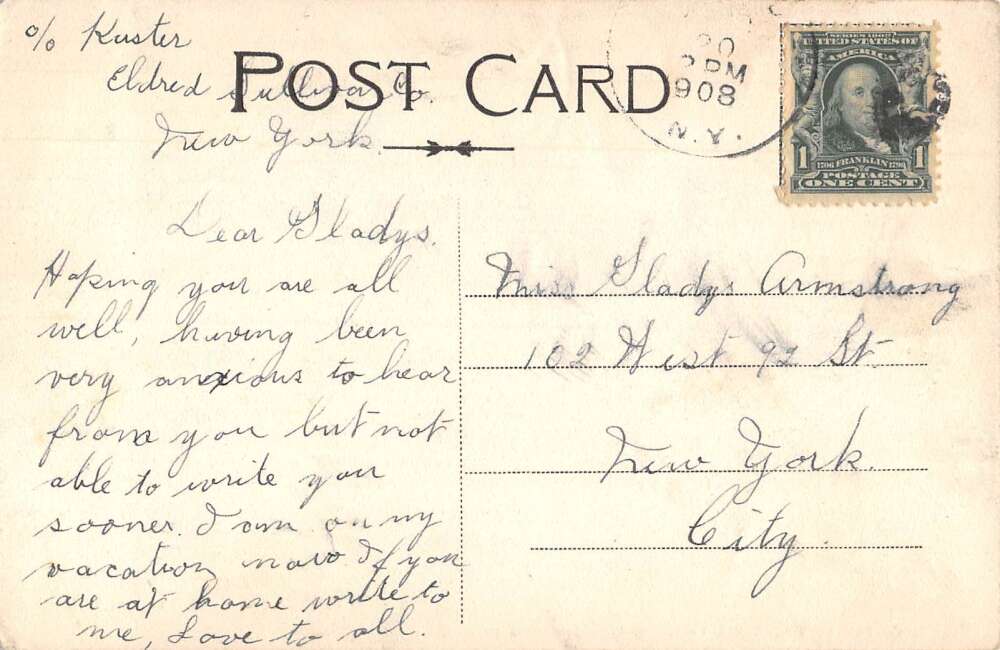 c/o Kuster
Eldred Sullivan Co.
New York.
POST CARD
20
PM
1908
N.Y.
SERIES 1902
UNITED STATES OF
AMERICA
1706 FRANKLIN 1790
1 POSTAGE 1
ONE CENT
Dear Gladys.
Hoping you are all
well, having been
very anxious to hear
from you but not
able to write you
sooner. I am on my
vacation now If you
are at home write to
me, Love to all.
Miss Gladys Armstrong
102 West 92 St.
New York.
City.